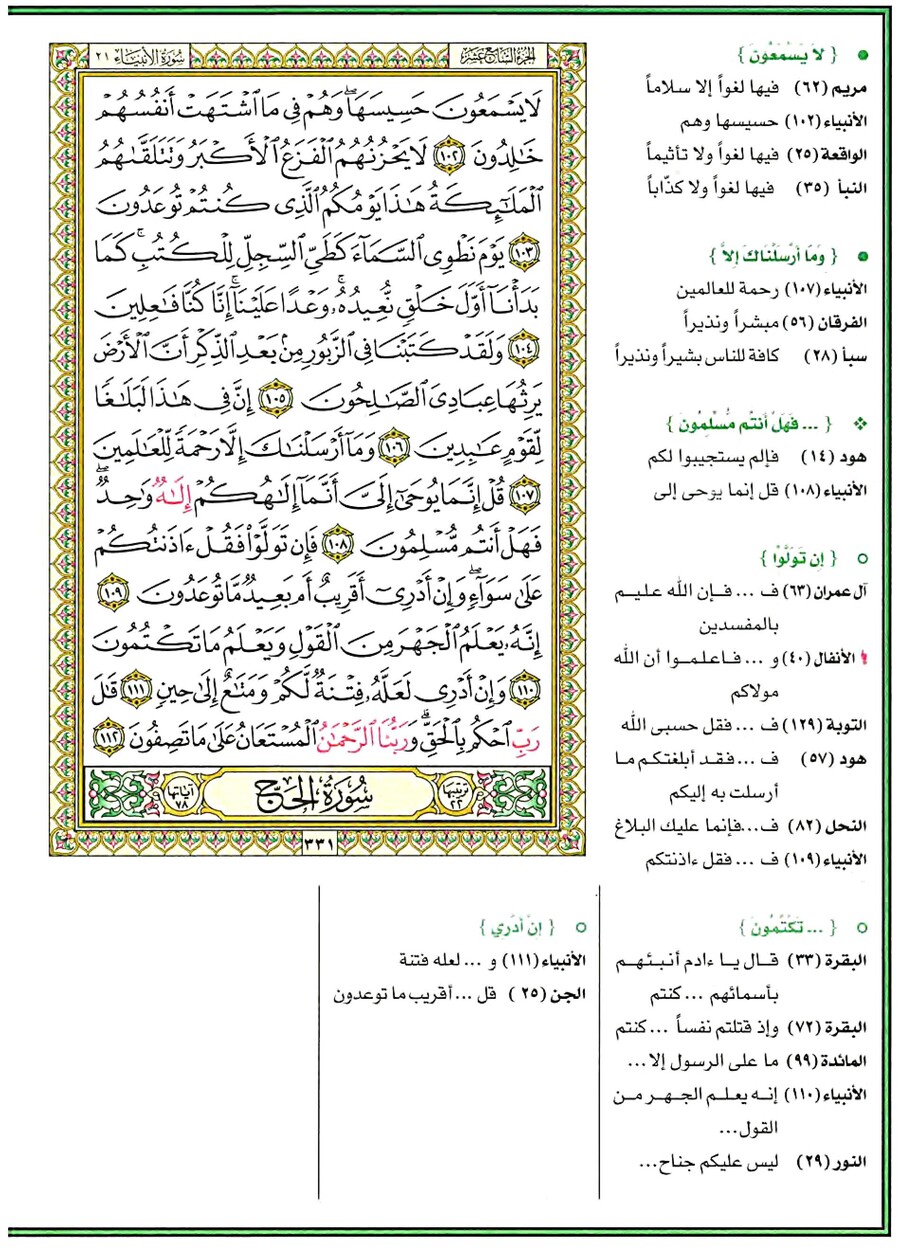 الجزء السابع عشر
سورة الأنبياء ٢١
لَا يَسْمَعُونَ حَسِيسَهَا ۖ وَهُمْ فِي مَا اشْتَهَتْ أَنفُسُهُمْ
خَالِدُونَ ١٠٢ لَا يَحْزُنُهُمُ الْفَزَعُ الْأَكْبَرُ وَتَتَلَقَّاهُمُ
الْمَلَائِكَةُ هَٰذَا يَوْمُكُمُ الَّذِي كُنتُمْ تُوعَدُونَ
١٠٣ يَوْمَ نَطْوِي السَّمَاءَ كَطَيِّ السِّجِلِّ لِلْكُتُبِ ۚ كَمَا
بَدَأْنَا أَوَّلَ خَلْقٍ نُّعِيدُهُ ۚ وَعْدًا عَلَيْنَا ۚ إِنَّا كُنَّا فَاعِلِينَ
١٠٤ وَلَقَدْ كَتَبْنَا فِي الزَّبُورِ مِن بَعْدِ الذِّكْرِ أَنَّ الْأَرْضَ
يَرِثُهَا عِبَادِيَ الصَّالِحُونَ ١٠٥ إِنَّ فِي هَٰذَا لَبَلَاغًا
لِّقَوْمٍ عَابِدِينَ ١٠٦ وَمَا أَرْسَلْنَاكَ إِلَّا رَحْمَةً لِّلْعَالَمِينَ
١٠٧ قُلْ إِنَّمَا يُوحَىٰ إِلَيَّ أَنَّمَا إِلَٰهُكُمْ إِلَٰهٌ وَاحِدٌ ۖ
فَهَلْ أَنتُم مُّسْلِمُونَ ١٠٨ فَإِن تَوَلَّوْا فَقُلْ ءَاذَنتُكُمْ
عَلَىٰ سَوَاءٍ ۖ وَإِنْ أَدْرِي أَقَرِيبٌ أَم بَعِيدٌ مَّا تُوعَدُونَ ١٠٩
إِنَّهُ يَعْلَمُ الْجَهْرَ مِنَ الْقَوْلِ وَيَعْلَمُ مَا تَكْتُمُونَ
١١٠ وَإِنْ أَدْرِي لَعَلَّهُ فِتْنَةٌ لَّكُمْ وَمَتَاعٌ إِلَىٰ حِينٍ ١١١ قَالَ
رَبِّ احْكُم بِالْحَقِّ ۗ وَرَبُّنَا الرَّحْمَٰنُ الْمُسْتَعَانُ عَلَىٰ مَا تَصِفُونَ ١١٢
ترتيبها ٢٢ سُورَةُ الحَجّ آياتها ٧٨
٣٣١
{ لاَ يَسْمَعُونَ }
مريم (٦٢) فيها لغواً إلا سلاماً
الأنبياء (١٠٢) حسيسها وهم
الواقعة (٢٥) فيها لغواً ولا تأثيماً
النبأ (٣٥) فيها لغواً ولا كذّاباً
{ وَمَا أَرْسَلْنَاكَ إلاَّ }
الأنبياء (١٠٧) رحمة للعالمين
الفرقان (٥٦) مبشراً ونذيراً
سبأ (٢٨) كافة للناس بشيراً ونذيراً
{ ... فَهَلْ أَنتُم مُّسْلِمُونَ }
هود (١٤) فإلم يستجيبوا لكم
الأنبياء (١٠٨) قل إنما يوحى إلى
{ إن تَوَلَّوْا }
آل عمران (٦٣) ف ... فإن الله عليم
بالمفسدين
! الأنفال (٤٠) و ... فاعلموا أن الله
مولاكم
التوبة (١٢٩) ف ... فقل حسبى الله
هود (٥٧) ف ... فقد أبلغتكم ما
أرسلت به إليكم
النحل (٨٢) ف...فإنما عليك البلاغ
الأنبياء (١٠٩) ف ... فقل ءاذنتكم
{ ... تَكْتُمُونَ }
البقرة (٣٣) قال يا ءادم أنبئهم
بأسمائهم ...كنتم
البقرة (٧٢) وإذ قتلتم نفساً ...كنتم
المائدة (٩٩) ما على الرسول إلا...
الأنبياء (١١٠) إنه يعلم الجهر من
القول...
النور (٢٩) ليس عليكم جناح...
{ إنْ أَدْرِي }
الأنبياء (١١١) و ... لعله فتنة
الجن (٢٥) قل ... أقريب ما توعدون